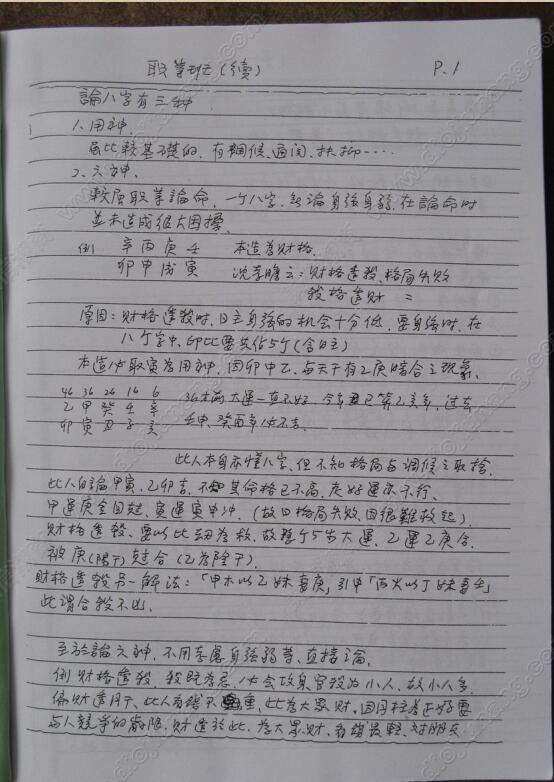 職業班(續) P.1
論八字有三种
1、用神
虽比較基礎的，有調候、通関、扶抑……
2、六神、
較屬職業論命，一个八字，無論身強身弱，在論命时
並未造成很大困擾。
例 辛丙庚壬 本造為財格。
卯申戌寅 沈孝瞻云：財格透殺，格局失敗
殺格透財 =
原因：財格透殺时，日主身強的机会十分低，要身強时，在
八个字中，印比要共佔5个(含日主)
本造必取寅為用神，因卯申乙，与天干有乙庚暗合之現象。
46 36 26 16 6
乙甲癸壬辛
卯寅丑子亥
36才前大運一直不好，今年已算乙亥年，过去
壬申、癸酉年必不吉。
此人本身亦懂八字，但不知格局与調候之取捨，
此人自論甲寅，乙卯吉，不知其命格已不高，走好運亦不行，
甲運庚金回尅，寅運寅申冲，(故曰格局失敗，因很難救起)
財格透殺，要以比刼為救，故整个5岁大運，乙運乙庚合，
被庚(陽干)尅合(乙為陰干)。
財格透殺另一解法：「甲木以乙妹妻庚」引申「丙火以丁妹妻壬」
此謂合殺不出。
至於論六神，不用考慮身強弱等，直接論，
例財格透殺，殺既為忌，必会攻身官殺為小人，故小人多，
偏財透月干，此人看錢不重，此為大眾財，因月柱者正好要
与人競爭的範限，財透於此，為大眾財，看錢最輕，对朋友